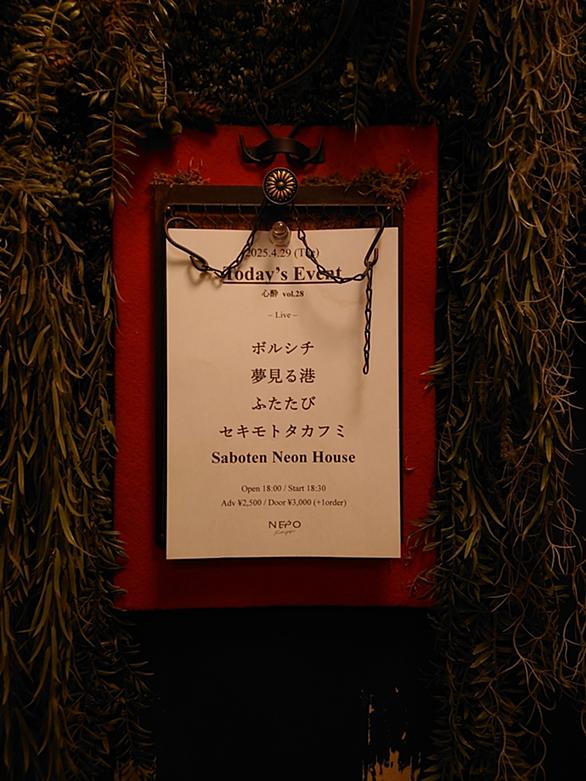 2025.4.29 (Tue)
Today's Event
心酔 vol.28
– Live –
ボルシチ
夢見る港
ふたたび
セキモトタカフミ
Saboten Neon House
Open 18:00 / Start 18:30
Adv ¥2,500 / Door ¥3,000 (+1order)
NEPO